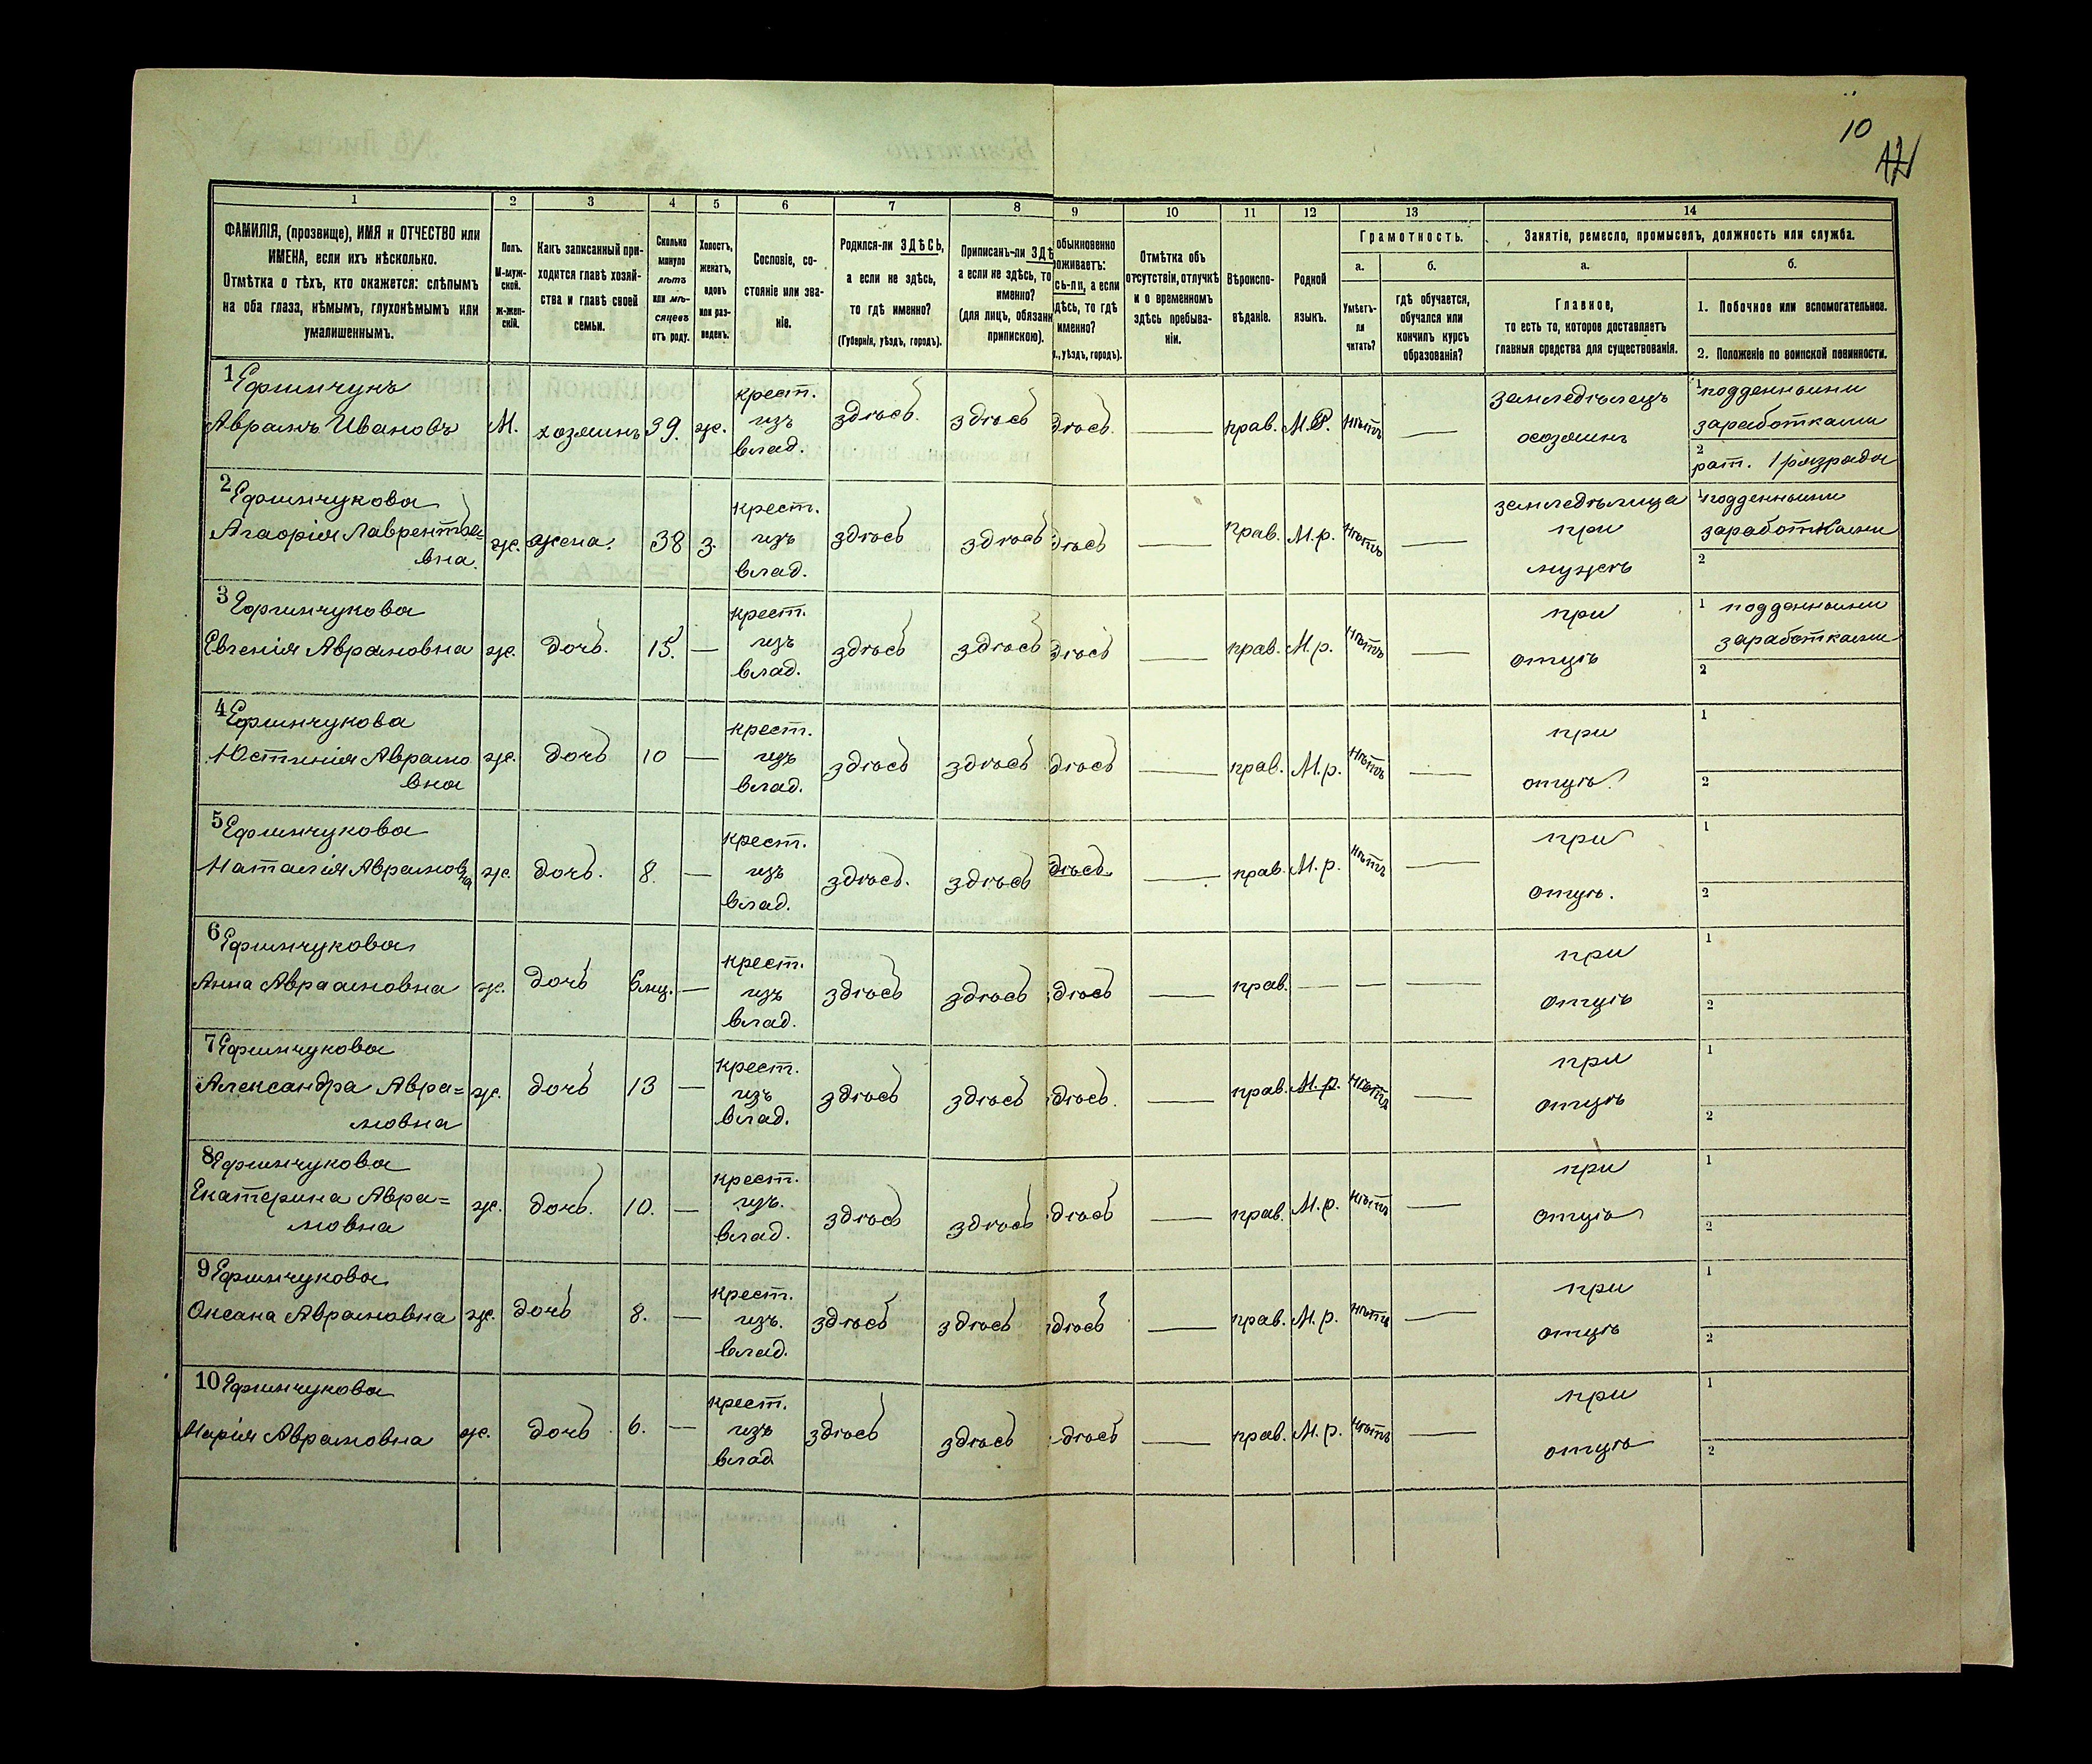 10
1 2 3 4 5 6 7 8 9 10 11 12 13 14
ФАМИЛІЯ, (прозвище), ИМЯ и ОТЧЕСТВО или
ИМЕНА, если ихъ нѣсколько.
Отмѣтка о тѣхъ, кто окажется: слѣпымъ
на оба глаза, нѣмымъ, глухонѣмымъ или
умалишеннымъ.
Полъ.
М-муж-
ской.
ж-жен-
скій.
Какъ записанный при-
ходится главѣ хозяй-
ства и главѣ своей
семьи.
Сколько
минуло
лѣтъ
или мѣ-
сяцевъ
отъ роду.
Холостъ,
женатъ,
вдовъ
или раз-
веденъ.
Сословіе, со-
стояніе или зва-
ніе.
Родился-ли ЗДѢСЬ,
а если не здѣсь,
то гдѣ именно?
(Губернія, уѣздъ, городъ).
Приписанъ-ли ЗДѢ
а если не здѣсь, то
именно?
(для лицъ, обязанн
припискою).
обыкновенно
роживаетъ:
сь-ли, а если
дѣсь, то гдѣ
именно?
., уѣздъ, городъ).
Отмѣтка объ
отсутствіи, отлучкѣ
и о временномъ
здѣсь пребыва-
ніи.
Вѣроиспо-
вѣданіе.
Родной
языкъ.
Грамотность.
а. б.
Умѣетъ-
ли
читать?
гдѣ обучается,
обучался или
кончилъ курсъ
образованія?
Занятіе, ремесло, промыселъ, должность или служба.
а. б.
Главное,
то есть то, которое доставляетъ
главныя средства для существованія.
1. Побочное или вспомогательное.
2. Положеніе по воинской повинности.
1 Ефимчукъ крест. земледѣлецъ 1 подденными
Аврамъ Ивановъ М. хозяинъ 39. же. изъ здѣсь. здѣсь дѣсь. — прав. М.Р. нѣтъ — хозяинъ заработками
влад. 2 рат. 1 разряда
2 Ефимчукова крест. земледѣлица 1 подденными
Агафія Лавренть- же. жена. 38 з. изъ здѣсь здѣсь дѣсь прав. М.р. нѣтъ — при заработками
евна. влад. мужѣ 2
3 Ефимчукова крест. при 1 подденными
Евгенія Аврамовна же. дочь. 15. — изъ здѣсь здѣсь дѣсь — прав. М.р. нѣтъ — отцѣ заработками
влад. 2
4 Ефимчукова крест. при 1
Юстинія Аврамо же. дочь 10 — изъ здѣсь здѣсь дѣсь — прав. М.р. нѣтъ — отцѣ.
вна влад. 2
5 Ефимчукова крест. при 1
Наталія Аврамовна же. дочь. 8. — изъ здѣсь. здѣсь дѣсь. — прав. М.р. нѣтъ — отцѣ.
влад. 2
6 Ефимчукова крест. при 1
Анна Авраамовна же. дочь 6 мц. — изъ здѣсь здѣсь дѣсь — прав. — — — отцѣ
влад. 2
7 Ефимчукова крест. при 1
Александра Авра= же. дочь 13 — изъ здѣсь здѣсь дѣсь. — прав. М.р. нѣтъ — отцѣ
мовна влад. 2
8 Ефимчукова крест. при 1
Екатерина Авра= же. дочь. 10. — изъ. здѣсь здѣсь дѣсь — прав. М.р. нѣтъ — отцѣ
мовна влад. 2
9 Ефимчукова крест. при 1
Оксана Аврамовна же. дочь 8. — изъ. здѣсь здѣсь дѣсь — прав. М.р. нѣтъ — отцѣ
влад. 2
10 Ефимчукова крест. при 1
Марія Аврамовна же. дочь 6. — изъ здѣсь здѣсь дѣсь — прав. М.р. нѣтъ — отцѣ
влад 2